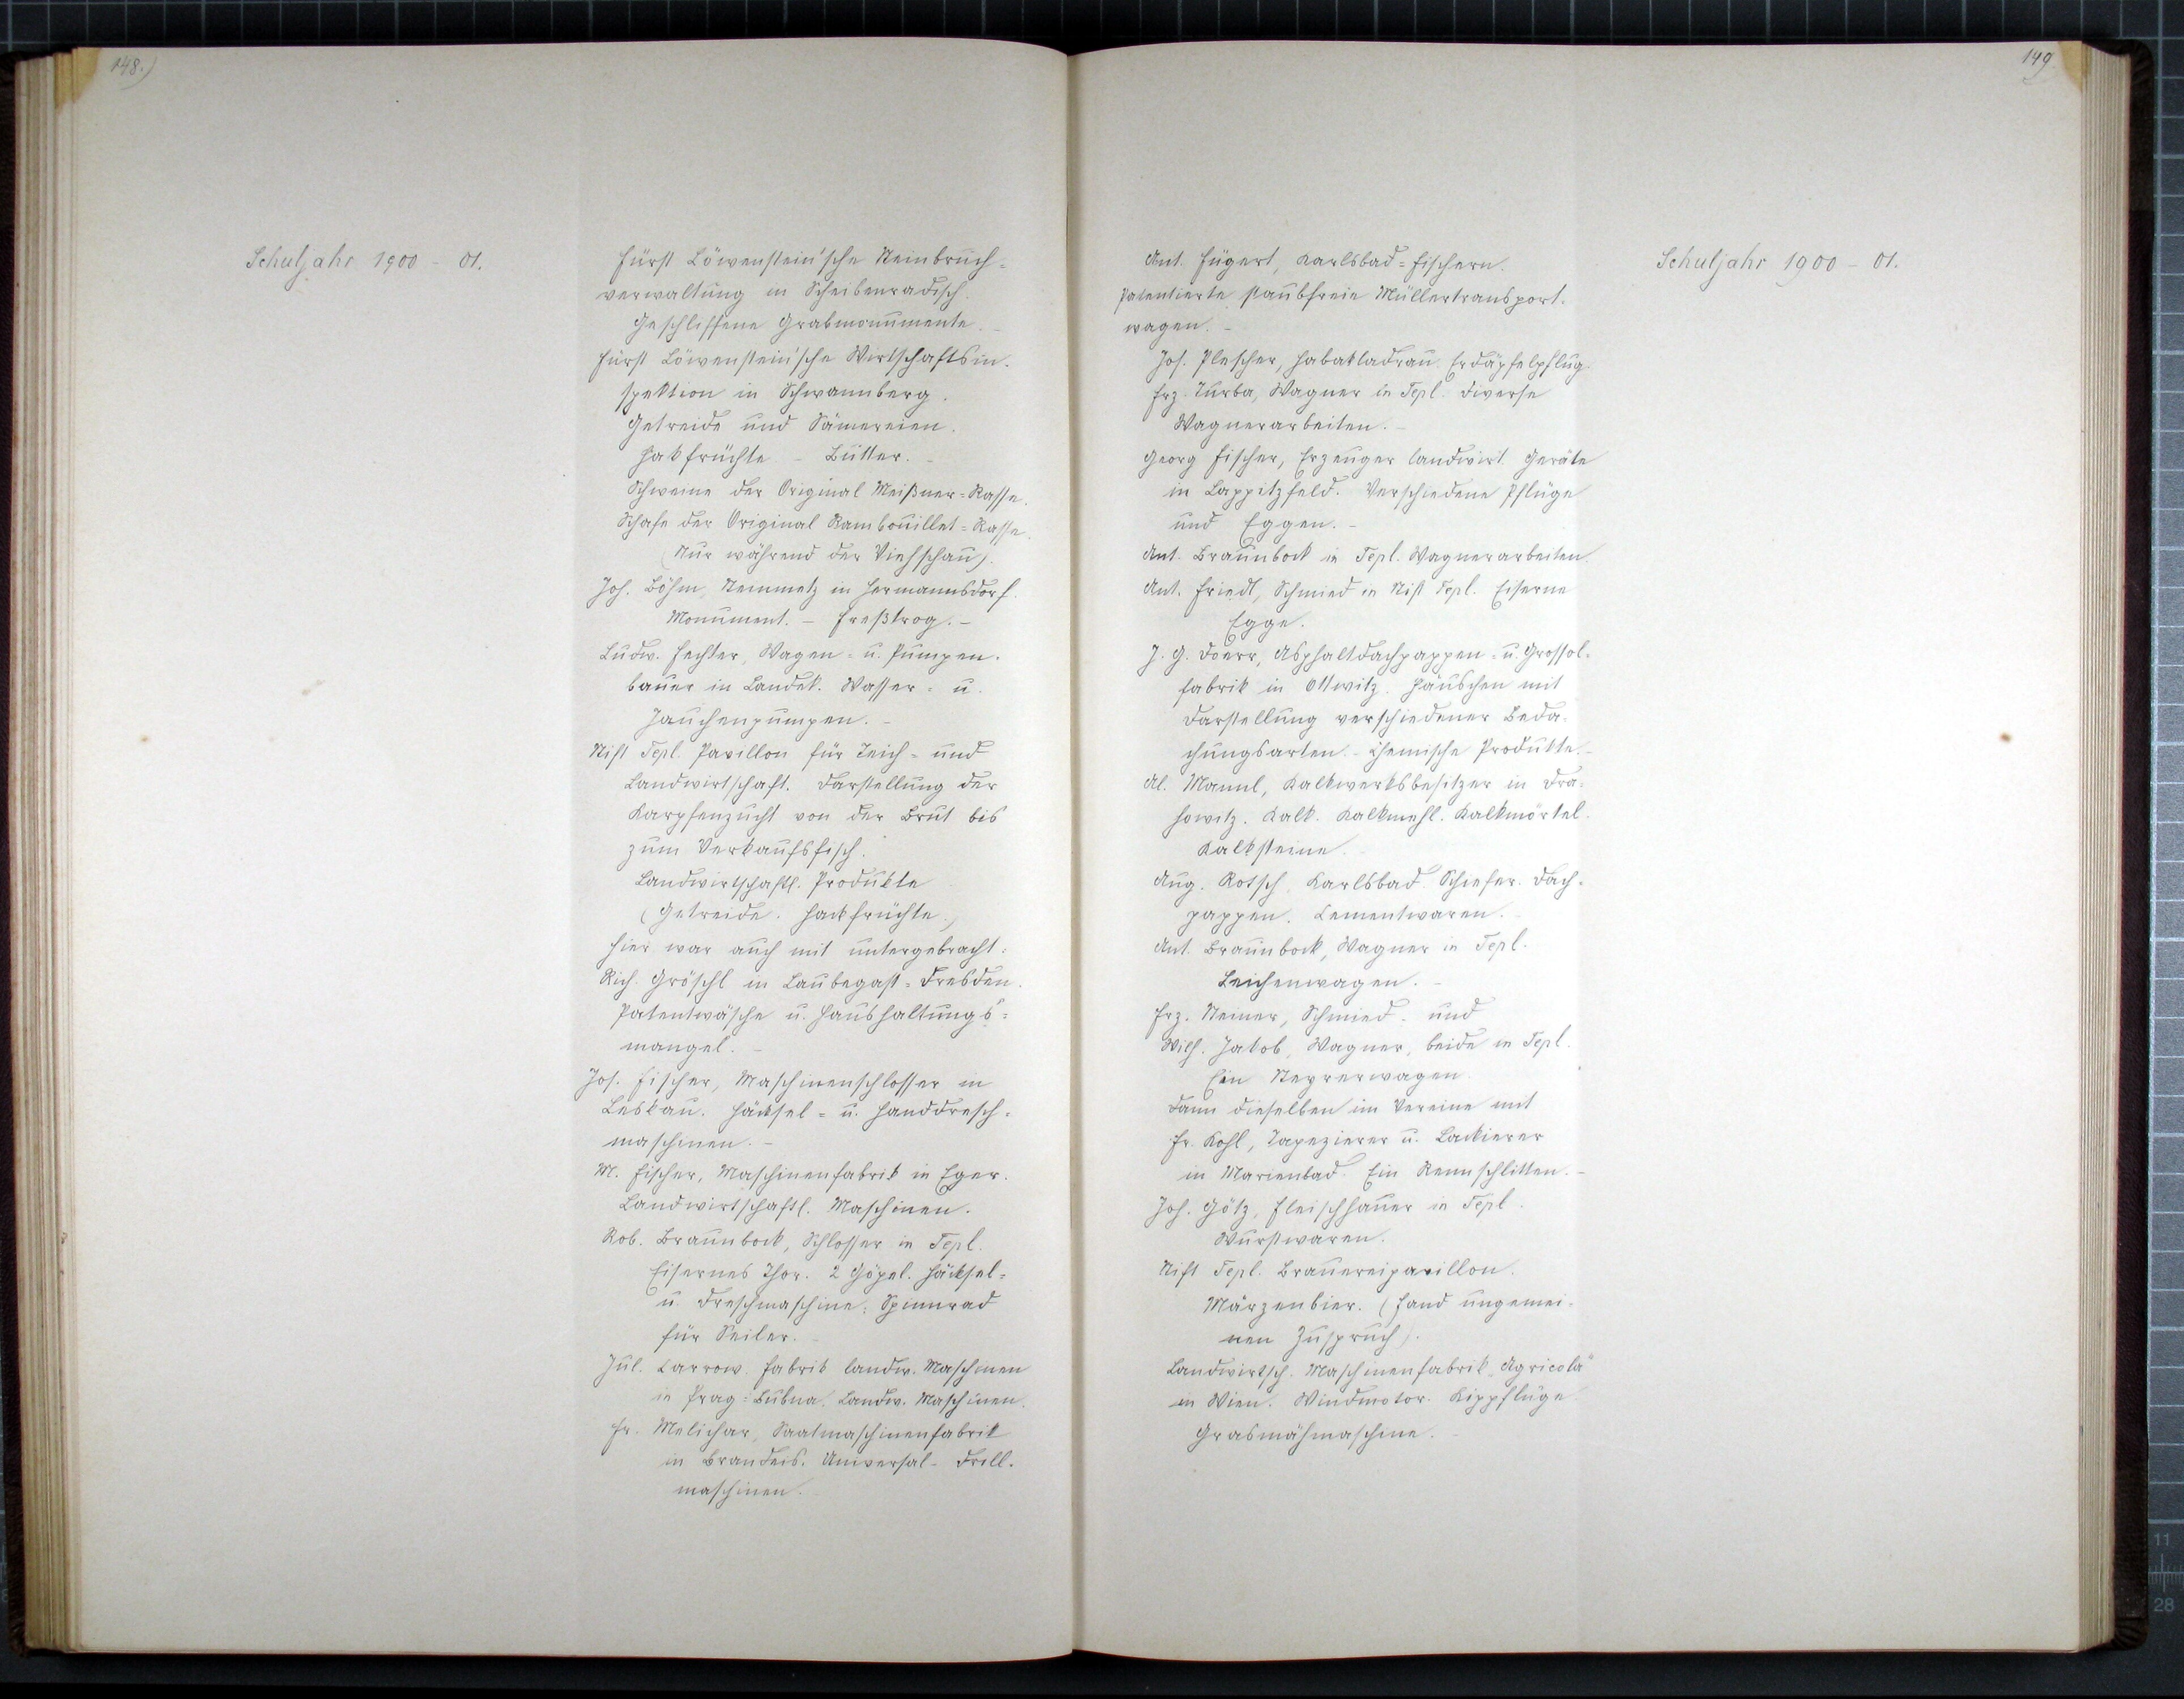 148.)
Schuljahr 1900 - 01.
Fürst Löwenstein'sche Steinbruch=
verwaltung in Scheibenradisch.
Geschliffene Grabmonumente. -
Fürst Löwenstein'sche Wirtschaftsin-
spektion in Schwannberg.
Getreide und Sämereien.
Hakfrüchte - Butter. -
Schweine der Original Meißner=Rasse.
Schafe der Original Rambouillet=Rasse.
(Nur während der Viehschau).
Joh. Böhm, Steinmetz in Hermannsdorf.
Monument. - Freßtrog. -
Ludw. Hechter, Wagen= u. Pumpen-
bauer in Landek. Wasser= u.
Jauchenpumpen. -
Stift Tepl. Pavillon für Teich= und
Landwirtschaft. Darstellung der
Karpfenzucht von der Brut bis
zum Verkaufsfisch.
Landwirtschaftl. Produkte
(Getreide. Hackfrüchte.)
Hier war auch mit untergebracht:
Rich. Gröschl in Laubegast=Dresden.
Patentwäsche u. Haushaltungs=
mangel. -
Jos. Fischer, Maschinenschlosser in
Leskau. Häcksel= u. Handdresch=
maschinen. -
M. Fischer, Maschinenfabrik in Eger.
Landwirtschaftl. Maschinen.
Rob. Braunbock, Schlosser in Tepl.
Eisernes Thor. 2 Göpel. Häcksel=
u. Dreschmaschine. Spinnrad
für Seiler. -
Jul. Carrow. Fabrik landw. Maschinen
in Prag=Bubna. Landw. Maschinen.
Fr. Melichar, Saatmaschinenfabrik
in Brandeis. Universal- Drill-
maschinen.
149.
Ant. Fügert, Karlsbad=Fischern.
Patentierte staubfreie Müllertransport-
wagen. -
Jos. Plescher, Habakladrau. Erdäpfelpflug.
Frz. Turba, Wagner in Tepl. Diverse
Wagnerarbeiten. -
Georg Fischer, Erzeuger landwirt. Geräte
in Lappitzfeld. Verschiedene Pflüge
und Eggen. -
Ant. Braunbock in Tepl. Wagnerarbeiten.
Ant. Friedl, Schmied in Stift Tepl. Eiserne
Egge.
J. G. Doerr, Asphaltdachpappen= u. Grossol-
fabrik in Ottwitz. Häuschen mit
Darstellung verschiedener Beda-
chungsarten. - Chemische Produkte. -
Al. Mannl, Kalkwerksbesitzer in Dra-
howitz. Kalk. Kalkmehl. Kalkmörtel.
Kalksteine. -
Aug. Rotsch, Karlsbad. Schiefer. Dach-
pappen. Cementwaren.
Ant. Braunbock, Wagner in Tepl.
Leichenwagen. -
Frz. Steiner, Schmied - und
Wilh. Jakob, Wagner, beide in Tepl.
Ein Steyrerwagen.
Dann dieselben im Vereine mit
Fr. Kohl, Tapezierer u. Lackierer
in Marienbad. Ein Rennschlitten. -
Joh. Götz, Fleischhauer in Tepl.
Wurstwaren.
Stift Tepl. Brauereipavillon.
Märzenbier. (Fand ungemei-
nen Zuspruch).
Landwirtsch. Maschinenfabrik „Agricola"
in Wien. Windmotor. Kippflüge
Grasmähmaschine. -
Schuljahr 1900 - 01.